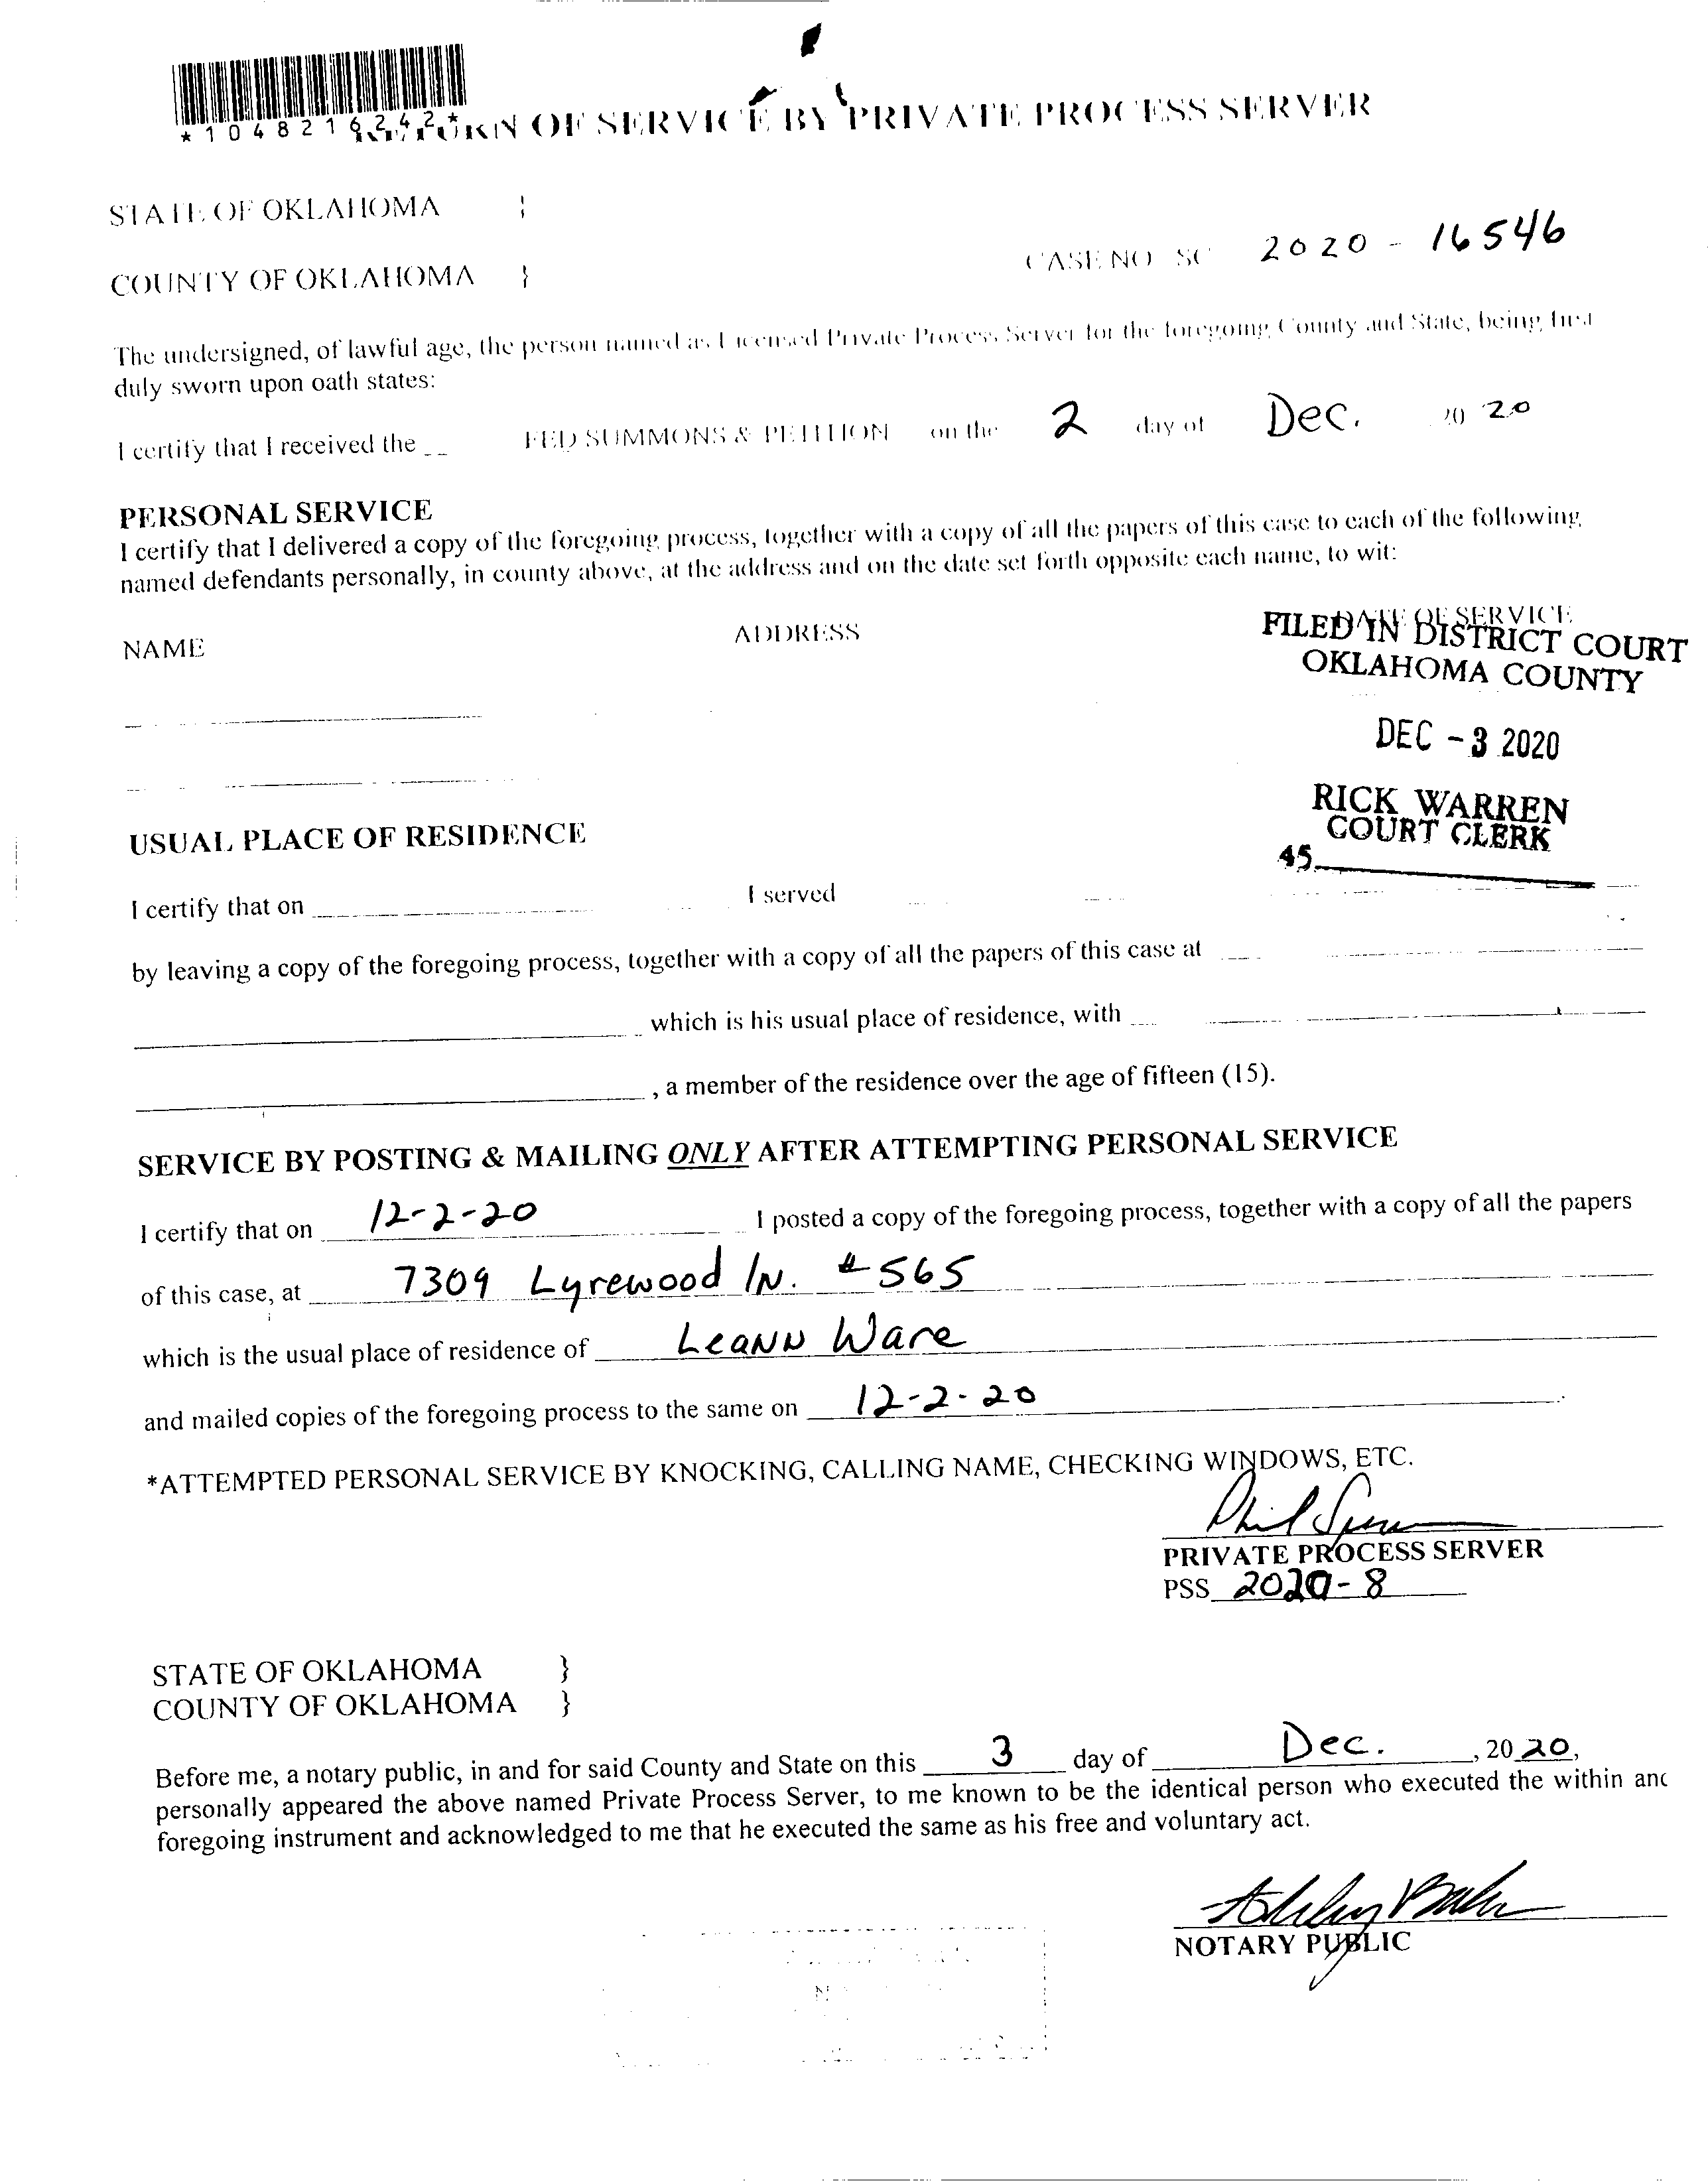 *1048216242*
RETURN OF SERVICE BY PRIVATE PROCESS SERVER
STATE OF OKLAHOMA }
CASE NO SC 2020 - 16546
COUNTY OF OKLAHOMA }
The undersigned, of lawful age, the person named as Licensed Private Process Server for the foregoing County and State, being first
duly sworn upon oath states:
I certify that I received the FED SUMMONS & PETITION on the 2 day of Dec. 20 20
PERSONAL SERVICE
I certify that I delivered a copy of the foregoing process, together with a copy of all the papers of this case to each of the following
named defendants personally, in county above, at the address and on the date set forth opposite each name, to wit:
NAME ADDRESS DATE OF SERVICE
FILED IN DISTRICT COURT
OKLAHOMA COUNTY
DEC - 3 2020
RICK WARREN
COURT CLERK
45
USUAL PLACE OF RESIDENCE
I certify that on I served
by leaving a copy of the foregoing process, together with a copy of all the papers of this case at
which is his usual place of residence, with
, a member of the residence over the age of fifteen (15).
SERVICE BY POSTING & MAILING ONLY AFTER ATTEMPTING PERSONAL SERVICE
I certify that on 12-2-20 I posted a copy of the foregoing process, together with a copy of all the papers
of this case, at 7309 Lyrewood ln. #565
which is the usual place of residence of Leann Ware
and mailed copies of the foregoing process to the same on 12-2-20
*ATTEMPTED PERSONAL SERVICE BY KNOCKING, CALLING NAME, CHECKING WINDOWS, ETC.
Phil
PRIVATE PROCESS SERVER
PSS 2020-8
STATE OF OKLAHOMA }
COUNTY OF OKLAHOMA }
Before me, a notary public, in and for said County and State on this 3 day of Dec. , 20 20,
personally appeared the above named Private Process Server, to me known to be the identical person who executed the within and
foregoing instrument and acknowledged to me that he executed the same as his free and voluntary act.
Ashley
NOTARY PUBLIC